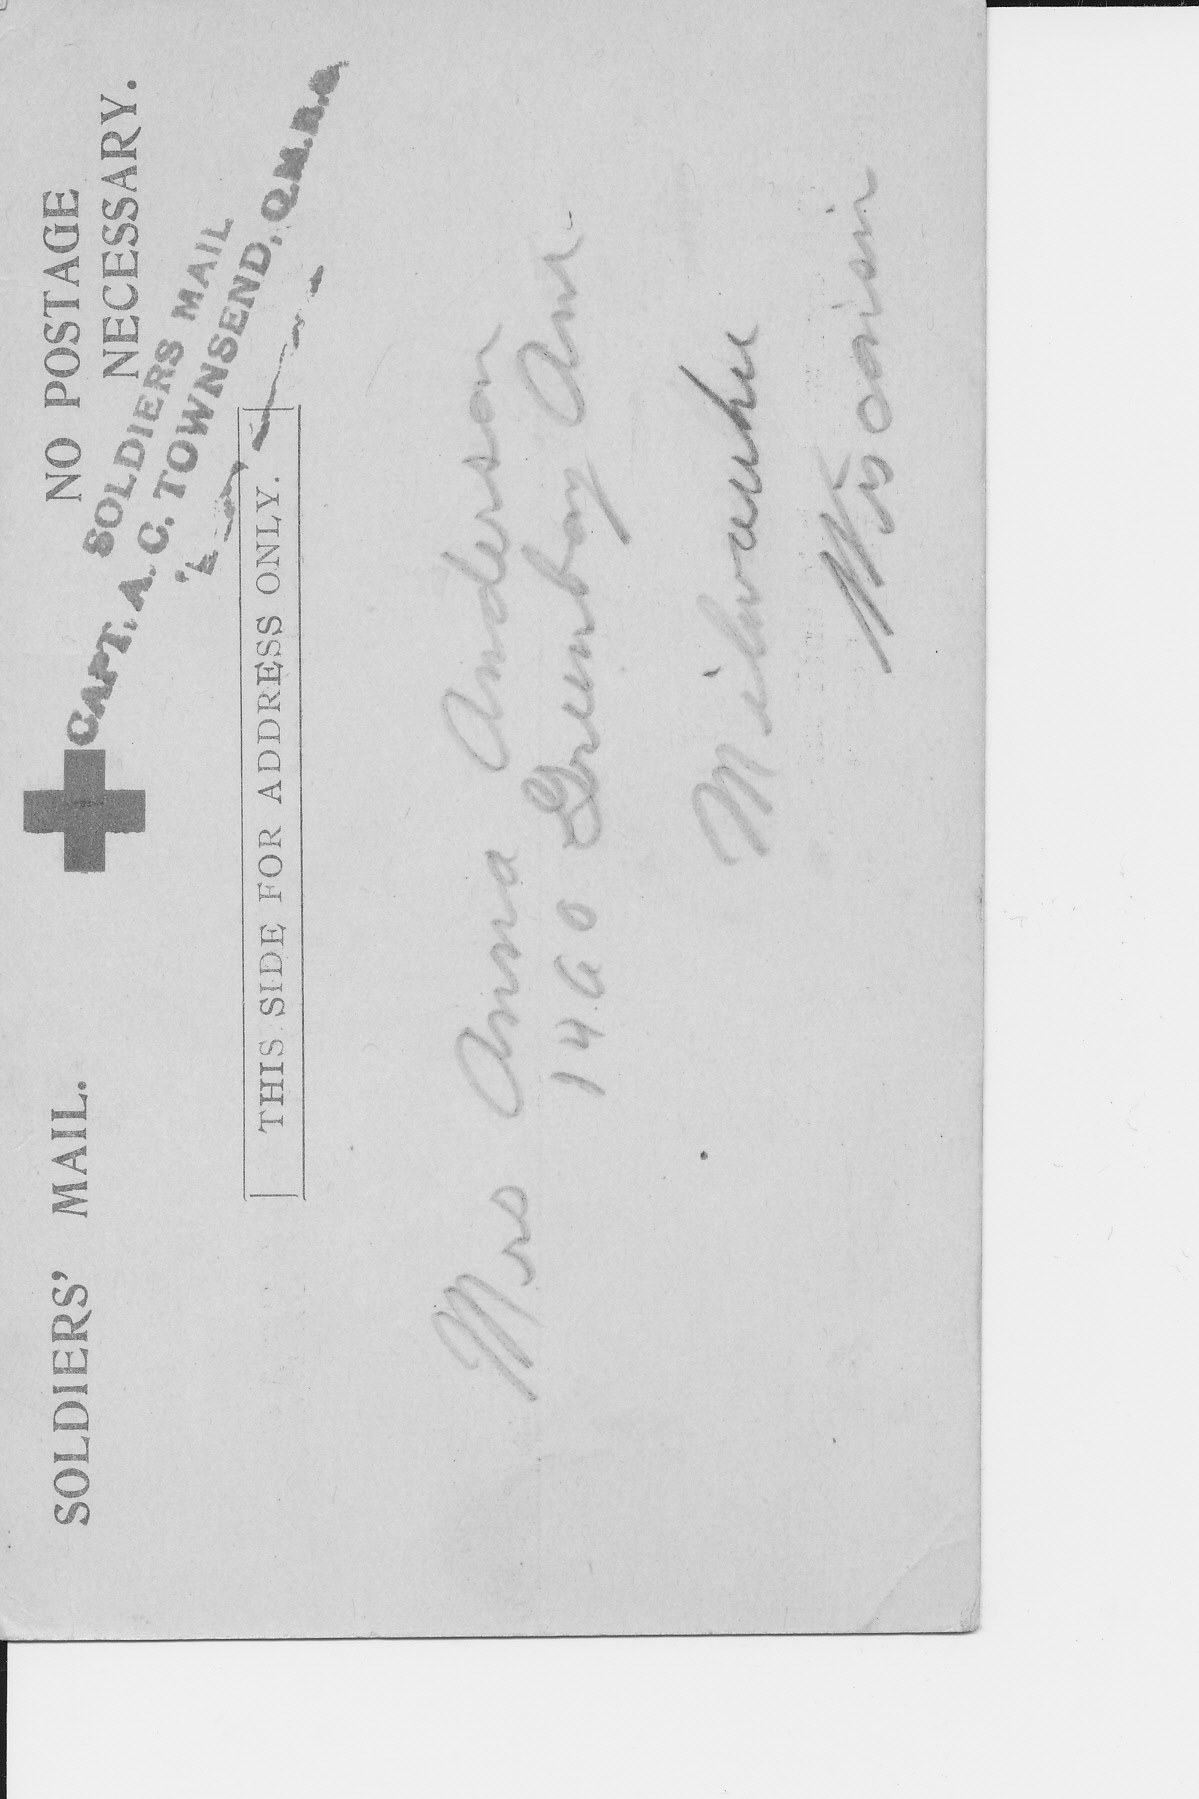 SOLDIERS' MAIL.
NO POSTAGE
NECESSARY.
SOLDIERS MAIL
CAPT. A. C. TOWNSEND, Q.M.R.C.
THIS SIDE FOR ADDRESS ONLY.
Mrs Anna Anderson
1460 Greenbay Ave
Milwaukee
Wisconsin